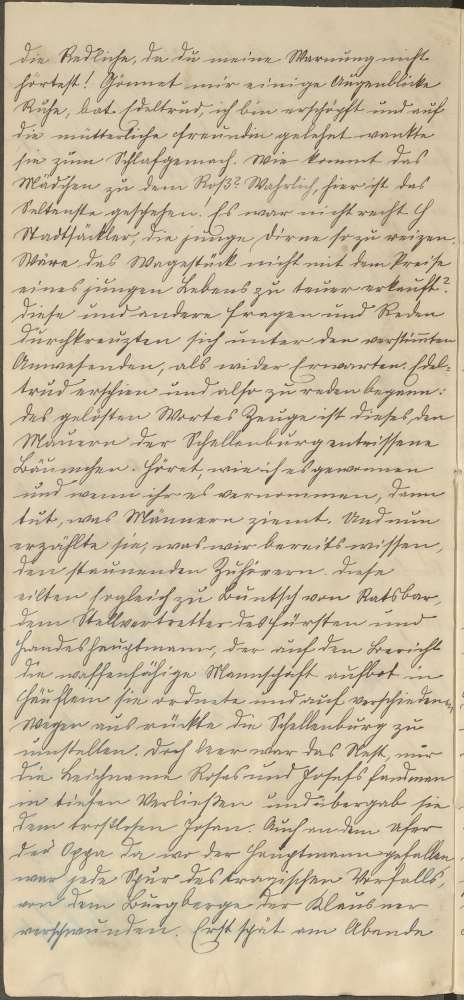 die Redliche, da du meine Warnung nicht
hörtest! Gönnet mir einige Augenblicke
Ruhe, bat Edeltrud, ich bin erschöpft und auf
die mütterliche Freundin gelehnt wankte
sie zum Schlafgemach. Wie kommt das
Mädchen zu dem Roß? Wahrlich, hier ist das
Seltenste geschehen. Es war nicht recht
Stadtsäckler, die junge Dirne so zu reizen.
Wäre das Wagestück nicht mit dem Preise
eines jungen Lebens zu teuer erkauft?
Diese und andere Fragen und Reden
durchkreuzten sich unter den verstim̅ten
Anwesenden, als wider Erwarten Edel-
trud erschien und also zu reden begann:
des gelösten Wortes Zeuge ist dieses, den
Mauern der Schellenburg entrissene
Bäumchen. Höret, wie ich es gewonnen
und wenn ihr es vernommen, dann
tut, was Männern ziemt. Und nun
erzählte sie, was wir bereits wissen,
den staunenden Zuhörern. Diese
eilten sogleich zu Buntsch von Ratsbar,
dem Stellvertretter des Fürsten und
Landeshauptmann, der auf den Bericht
die waffenfähige Mannschaft aufbot in
Häuflein sie ordnete und auf verschiedenen
Wegen ausrückte die Schellenburg zu
umstellen. Doch leer war das Nest, nur
die Leichname Roses und Josefs fand man
in tiefen Verließen und übergab sie
dem trostlosen Johan. Auch an dem Ufer
der Oppa da wo der Hauptmann gefallen,
war jede Spur des tragischen Vorfalls,
von dem Burgberge der Klausner
verschwunden. Erst spät am Abende